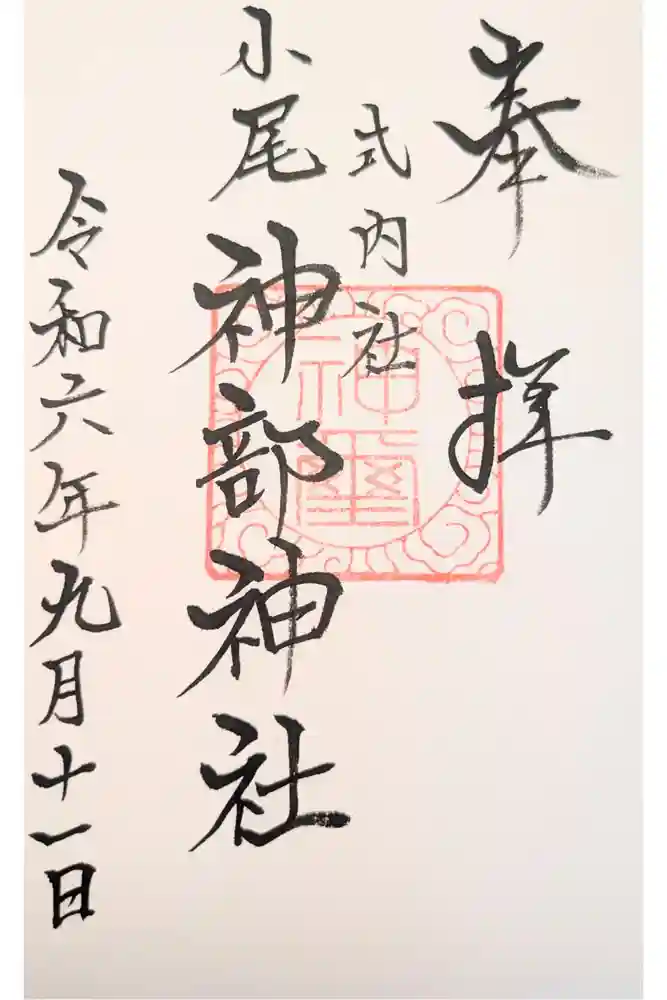 奉拝
式内社
小尾神部神社
令和六年九月十一日
神璽